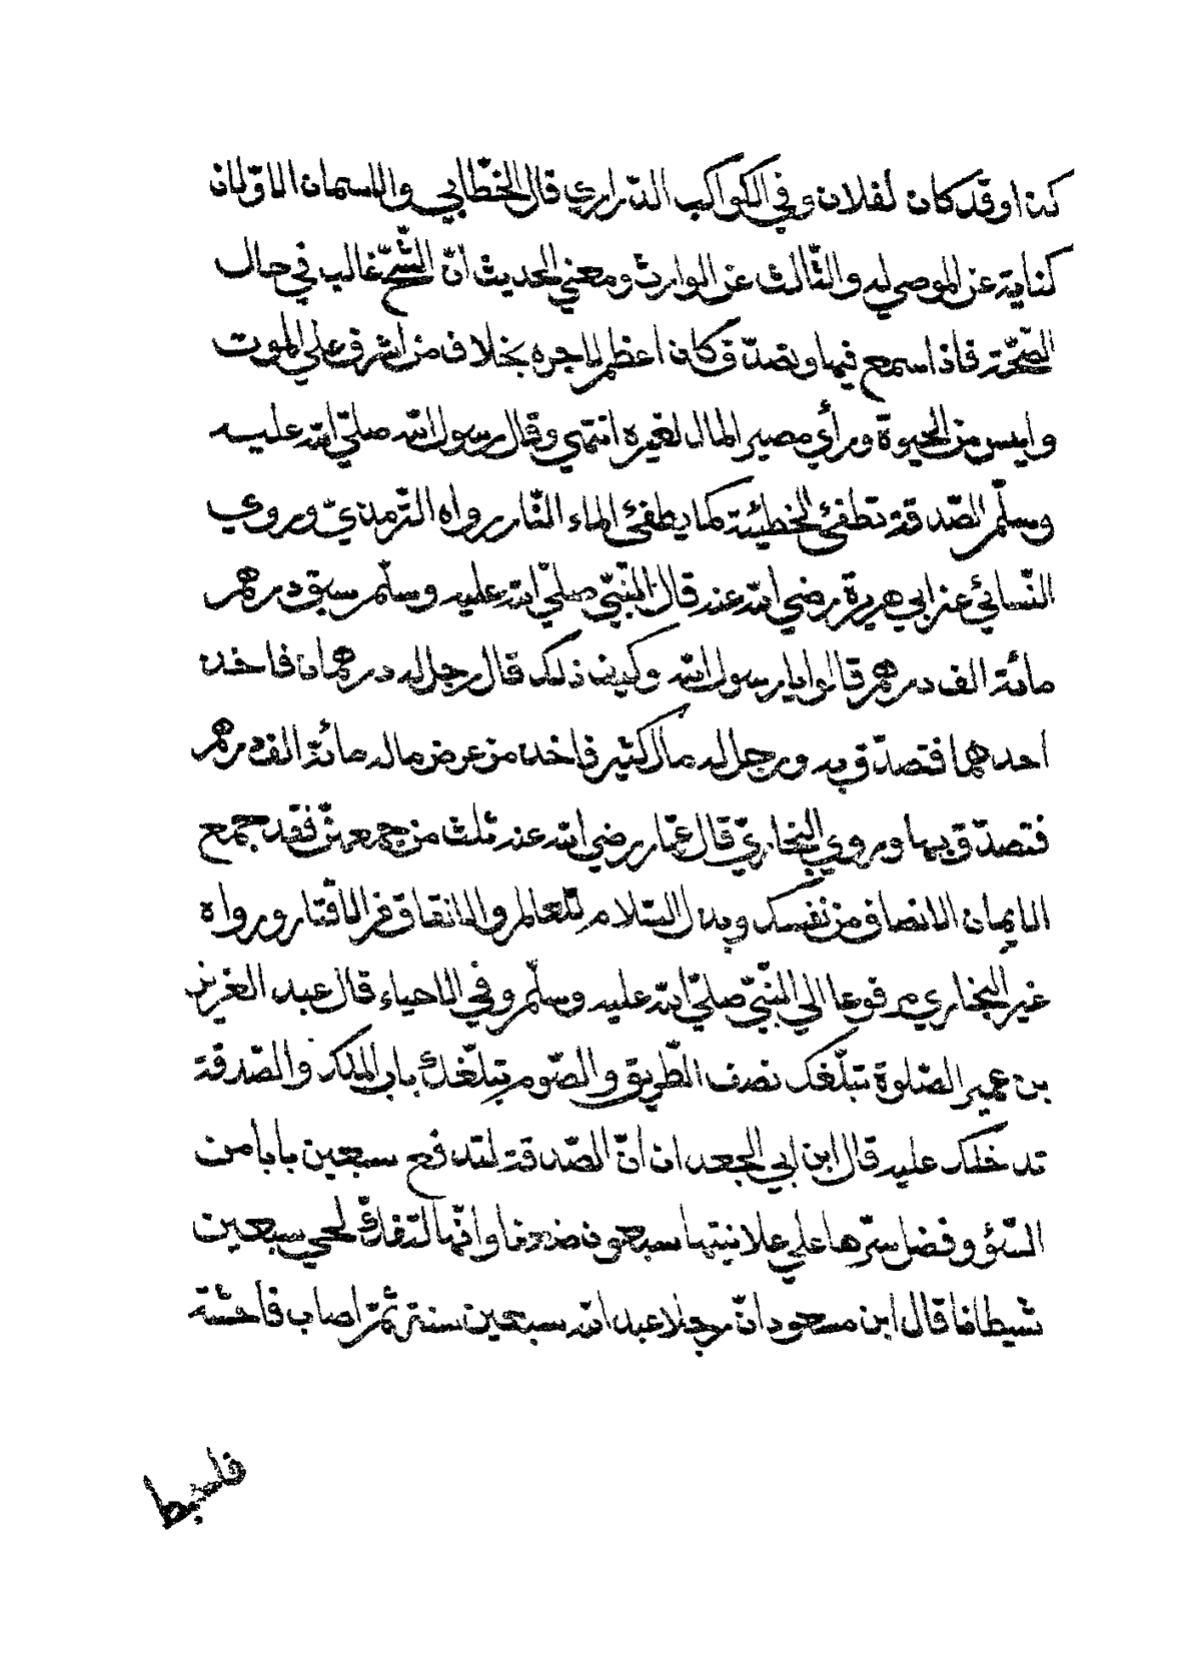 كذا وقد كان لفلان وفي الكواكب الدراري قال الخطّابي والاسمان الاوّلان
كناية عن الموصي له والثّالث عن الوارث ومعني الحديث انّ الشّحّ غالب في حال
الصّحّة فاذا سمع فيها وتصدّق كان اعظم لاجره بخلاف من اشرف علي الموت
وايس من الحيوة ورأي مصير المال لغيره انتهي وقال رسول الله صلّي الله عليه
وسلّم الصّدقة تطفئ الخطيئة كما يطفئ الماء النّار رواه التّرمذيّ وروي
النّسائي عن ابي هريرة رضي الله عنه قال النّبيّ صلّي الله عليه وسلّم سبق درهم
مائة الف درهم قالوا يا رسول الله وكيف ذلك قال رجل له درهمان فاخذ
احدهما فتصدّق به ورجل له مال كثير فاخذ من عرض ماله مائة الف درهم
فتصدّق بها وروي البخاريّ قال عمّار رضي الله عنه ثلث من جمعهنّ فقد جمع
الايمان الانصاف من نفسك وبذل السّلام للعالم والانفاق من الاقتار ورواه
غير البخاري مرفوعا الي النّبيّ صلّي الله عليه وسلّم وفي الاحياء قال عبد العزيز
بن عمير الصّلوة تبلّغك نصف الطّريق والصّوم يبلّغك باب الملك والصّدقة
تدخلك عليه قال ابن ابي الجعد ان انّ الصّدقة لتدفع سبعين بابا من
السّؤ وفضل سرّها علي علانيتها سبعون ضعفا وانّها لتفكّ لحي سبعين
شيطانا قال ابن مسعود انّ رجلا عبد الله سبعين سنة ثمّ اصاب فاحشة